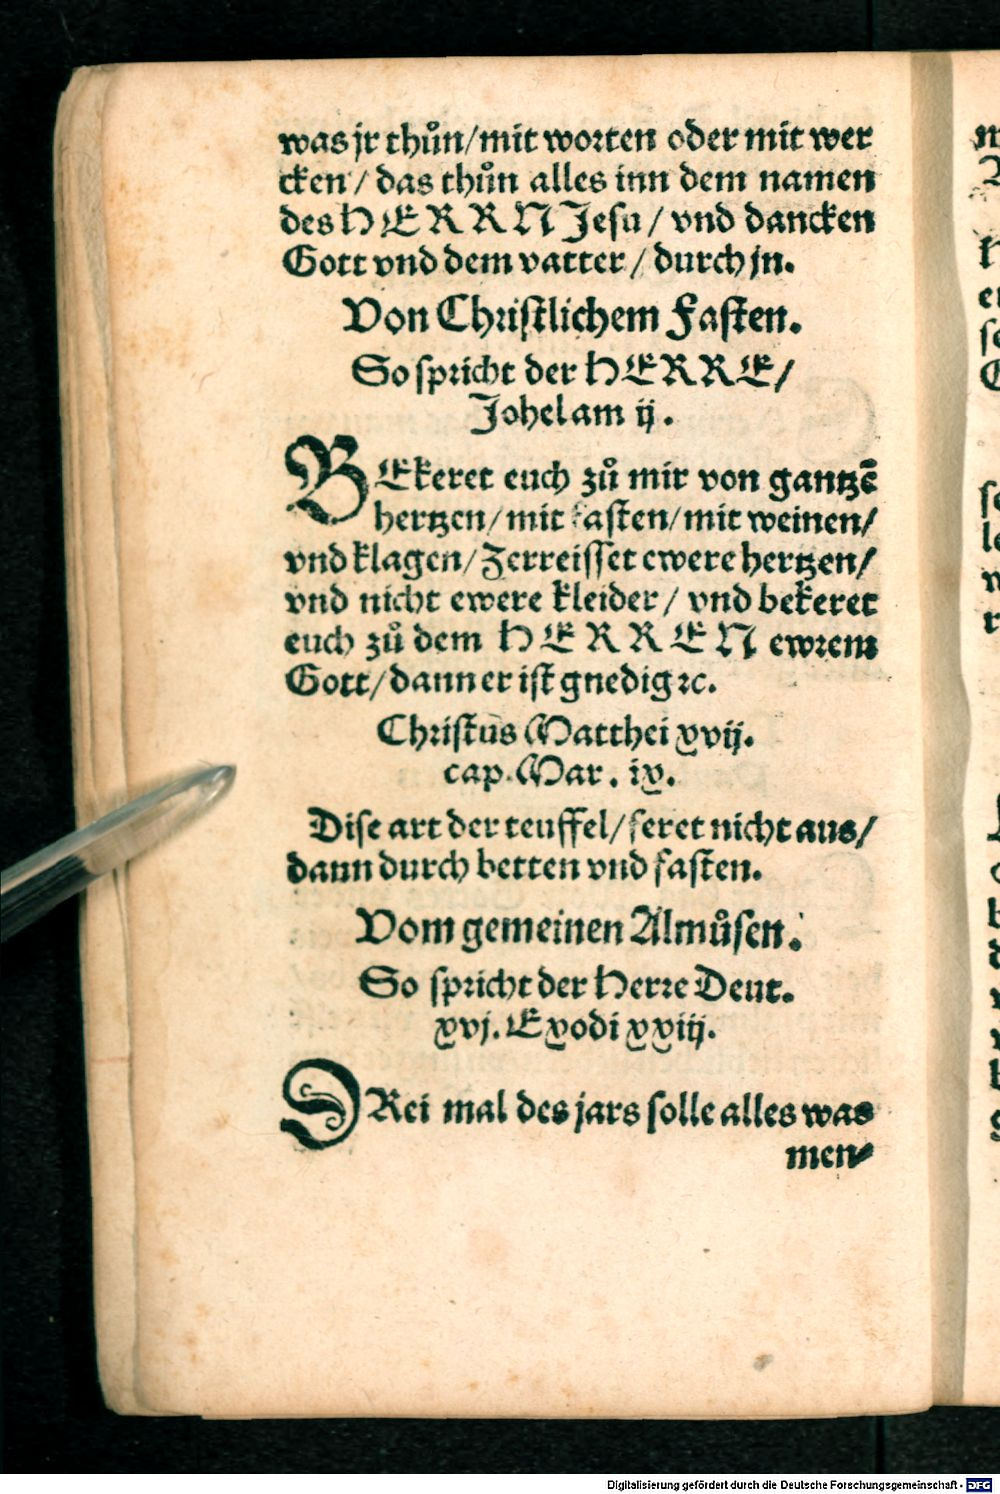 was jr thůn/mit worten oder mit wer
cken / das thůn alles inn dem namen
des HERRN Jesu / vnd dancken
Gott vnd dem vatter / durch jn.
Von Christlichem Fasten.
So spricht der HERRE/
Johel am ij.
BEkeret euch zů mir von gantzē
hertzen/ mit fasten/ mit weinen/
vnd klagen/ Zerreisset ewere hertzen/
vnd nicht ewere kleider / vnd bekeret
euch zů dem HERREN ewrem
Gott/ dann er ist gnedig ꝛc.
Christus Matthei xvij.
cap. Mar. ix.
Dise art der teuffel/ feret nicht aus/
dann durch betten vnd fasten.
Vom gemeinen Almůsen.
So spricht der Herre Deut.
xvj. Exodi xxiij.
DRei mal des jars solle alles was
men/
Digitalisierung gefördert durch die Deutsche Forschungsgemeinschaft - DFG